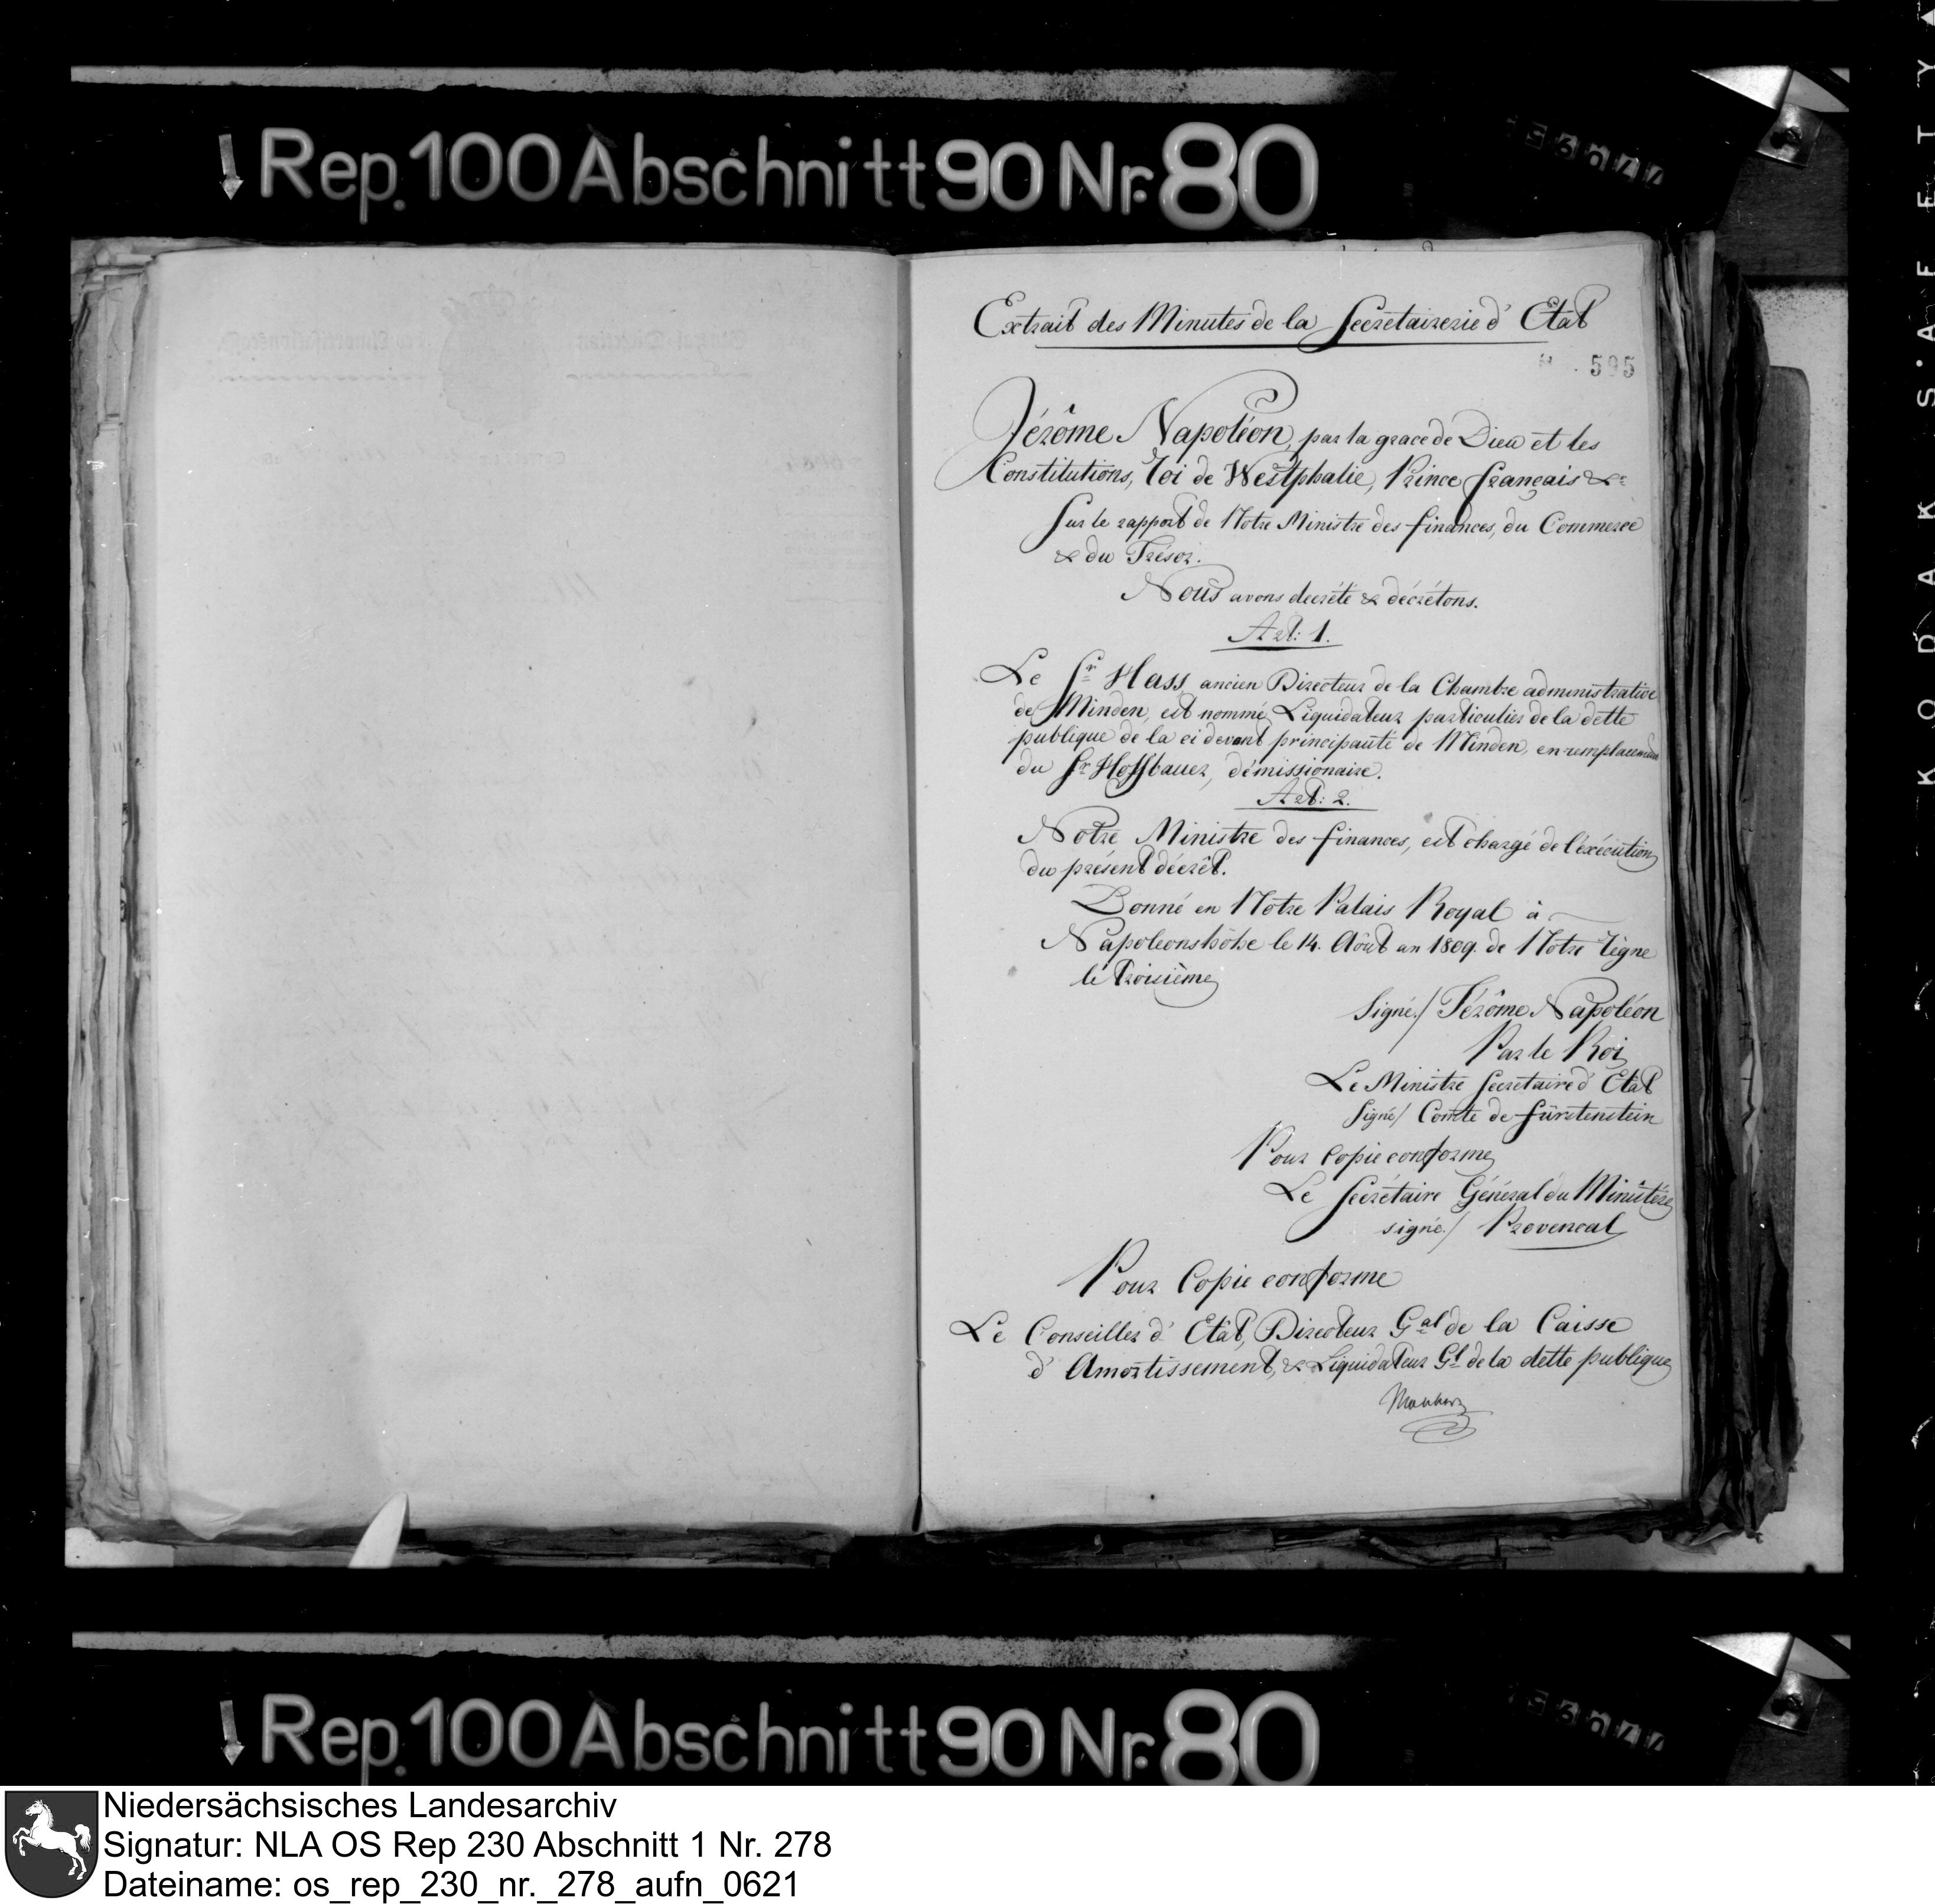 Rep. 100 Abschnitt 90 Nr. 80
Extrait des Minutes de la Secretairerie d' Etat
595
Jérôme Napoléon, par la grace de Dieu et les
Constitutions, Roi de Westphalie, Prince français &c
Sur le rapport de Notre Ministre des finances, du Commerce
& du Trésor.
Nous avons decrété & décrétons.
Art: 1.
Le Sr. Hass ancien Directeur de la Chambre administrative
de Minden, est nommé Liquidateur particulier de la dette
publique de la ci devant principauté de Minden, en remplacement
du Sr. Hoffbauer, démissionaire.
Art: 2.
Notre Ministre des finances, est chargé de l'éxécution
du présent décrêt.
Donné en Notre Palais Royal à
Napoleonshöhe le 14. Août an 1809. de Notre règne
le troisième
Signé / Jérôme Napoléon
Par le Roi
Le Ministre Secretaire d' Etat
Signé / Comte de fürstenstein
Pour Copie conforme
Le Secrétaire Général du Ministère
signé / Provencal
Pour Copie conforme
Le Conseiller d' Etat, Directeur Gal de la Caisse
d' Amortissement, & Liquidateur Gl de la dette publique
Rep. 100 Abschnitt 90 Nr. 80
KODAK SAFETY
Niedersächsisches Landesarchiv
Signatur: NLA OS Rep 230 Abschnitt 1 Nr. 278
Dateiname: os_rep_230_nr._278_aufn_0621